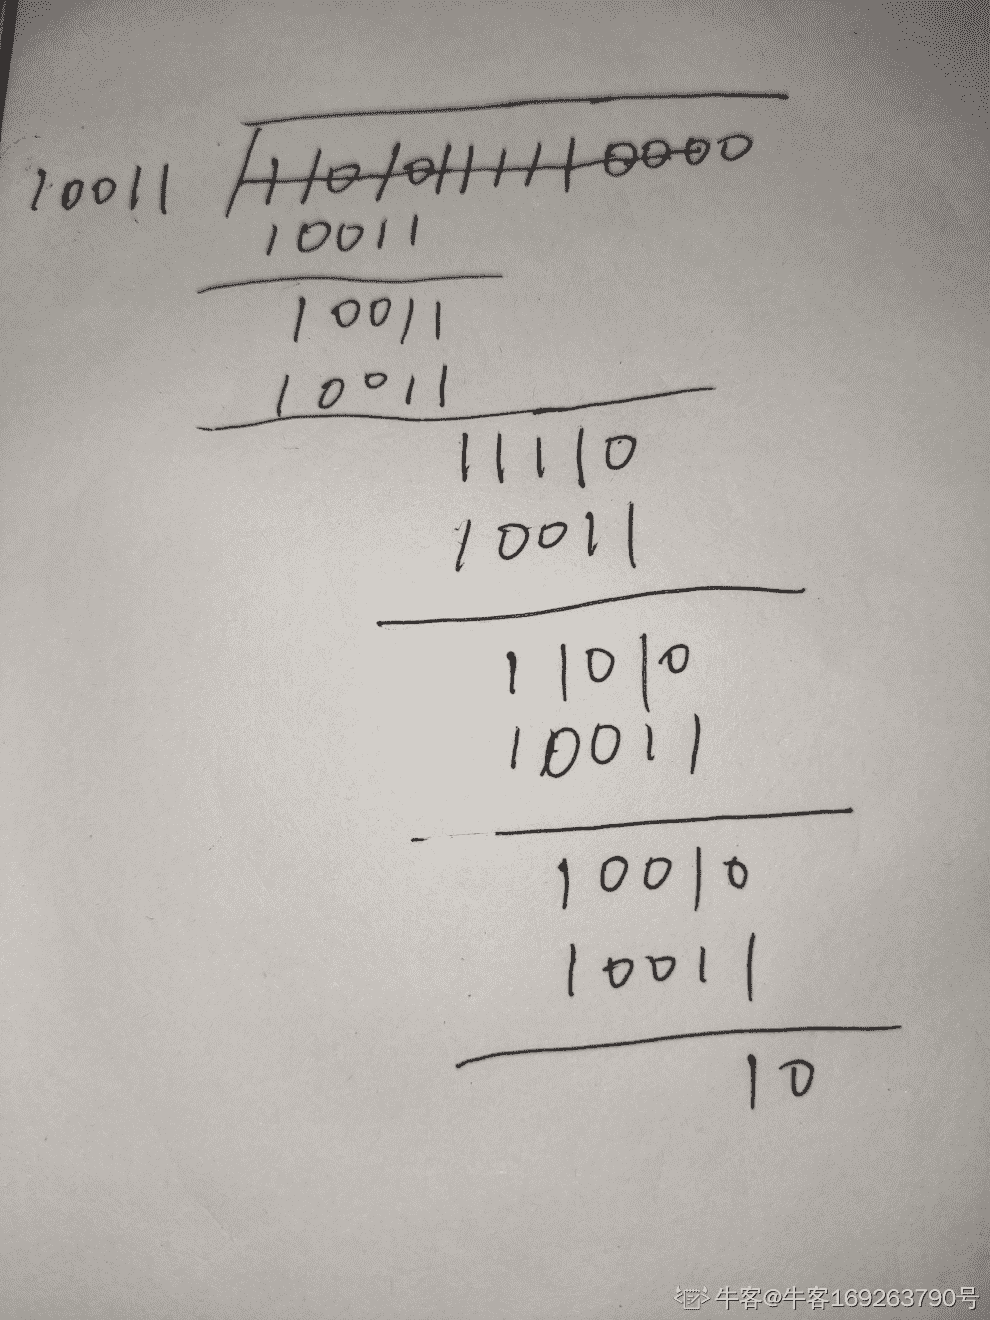 10011 11010111110000
10011
10011
10011
11110
10011
11010
10011
10010
10011
10
牛客@牛客169263790号